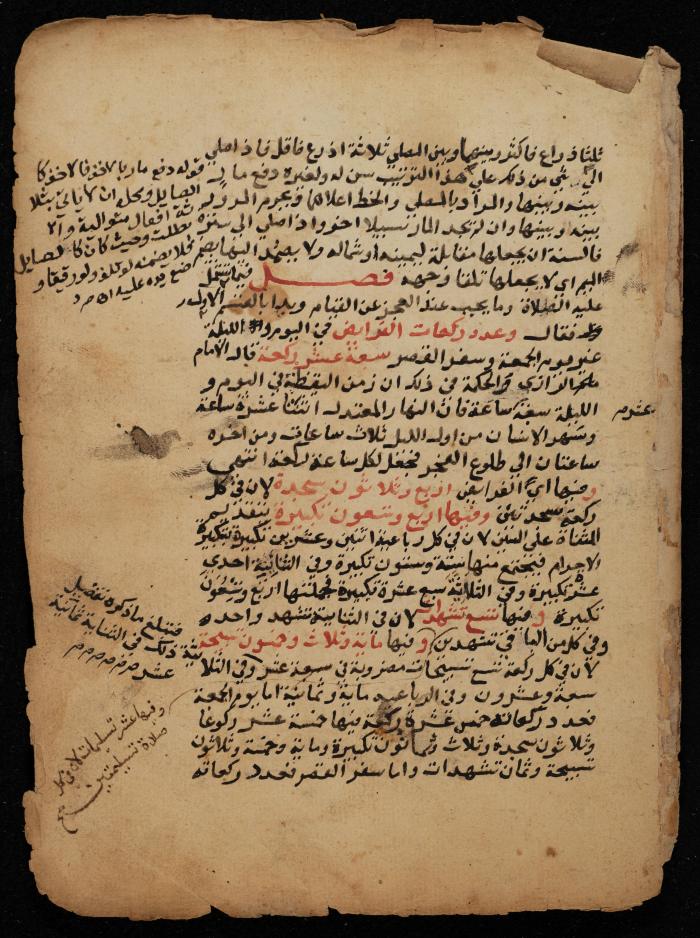 ثلثا ذراع فاكثر وبينها وبين المصلي ثلاثة اذرع فاقل فاذا صلي
الي شي من ذلك علي هذا الترتيب سن له ولغيره دفع مار
بينه وبينها والمراد بالمصلي والخط اعلاهما ويحرم المرور
بينه وبينها وان لم يجد المار سبيلا اخر واذا صلي الي سترة
فالسنة ان يجعلها مقابلة ليمينه او شماله ولا يصمد اليها بضم
الميم اي لا يجعلها تلقا وجهه فصل فيما تشتمل
عليه الصلاة وما يجب عند العجز عن القيام وبدا بالقسم الاول
فقال وعدد ركعات الفرايض في اليوم والليلة
غير يوم الجمعة وسفر القصر سبعة عشر ركعة قال الامام
الرازي والحكمة في ذلك ان زمن اليقظة في اليوم و
الليلة سبعة عشر ساعة فان النهار المعتدل اثنتا عشرة ساعة
وسهر الانسان من اول الليل ثلاث ساعات ومن اخره
ساعتان الي طلوع الفجر فجعل لكل ساعة ركعة انتهي
وفيها اي الفرايض اربع وثلاثون سجدة لان في كل
ركعة سجدتين وفيها اربع وتسعون تكبيرة بتقديم
المثناة علي السين لان في كل رباعية اثنين وعشرين تكبيرة بتكبيرة
الاحرام فيجتمع منها ستة وستون تكبيرة وفي الثنائية احدي
عشر تكبيرة وفي الثلاثية سبع عشرة تكبيرة فجملتها اربع وتسعون
تكبيرة وفيها تسع تشهدات لان في الثنائية تشهد واحد
وفي كل من الباقي تشهدين وفيها مائة وثلاث وخمسون تسبيحة
لان في كل ركعة تسع تسبيحات مضروبة في سبعة عشر وفي الثلاثية
سبعة وعشرون وفي الرباعية مائة وثمانية اما يوم الجمعة
فعدد ركعاته خمس عشرة ركعة فيها خمسة عشر ركوعا
وثلاثون سجدة وثلاث وثمانون تكبيرة ومائة وخمسة وثلاثون
تسبيحة وثمان تشهدات واما سفر القصر فعدد ركعاته
قوله دفع مار بالاخف فالاخف كا
لصايل ومحله ان لا ياتي بثلا
ثة افعال متوالية والا
بطلت وحيث كان كالصايل
فلا يضمنه لو تلف ولو رقيقا و
فمبلغ ما ذكره تفصيل
ذلك في الثنائية ثمانية
عشر
وفيها عشر تسليمات لان في كل
صلاة تسليمتين
صح